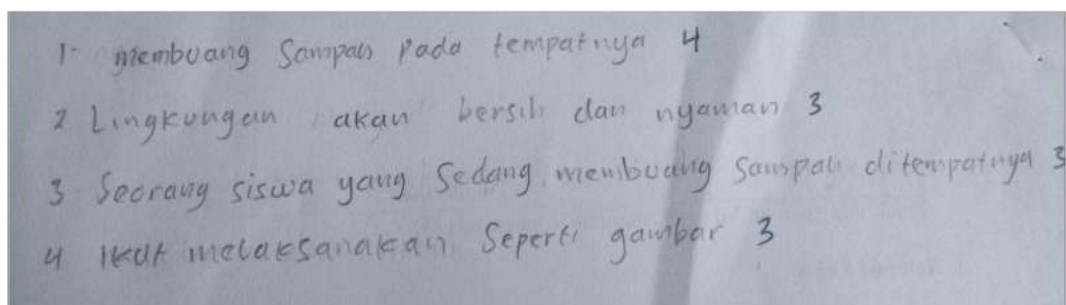 1. membuang Sampah Pada tempatnya 4
2 Lingkungan akan bersih dan nyaman 3
3 Seorang siswa yang Sedang membuang Sampah ditempatnya 3
4 Ikut melaksanakan Seperti gambar 3